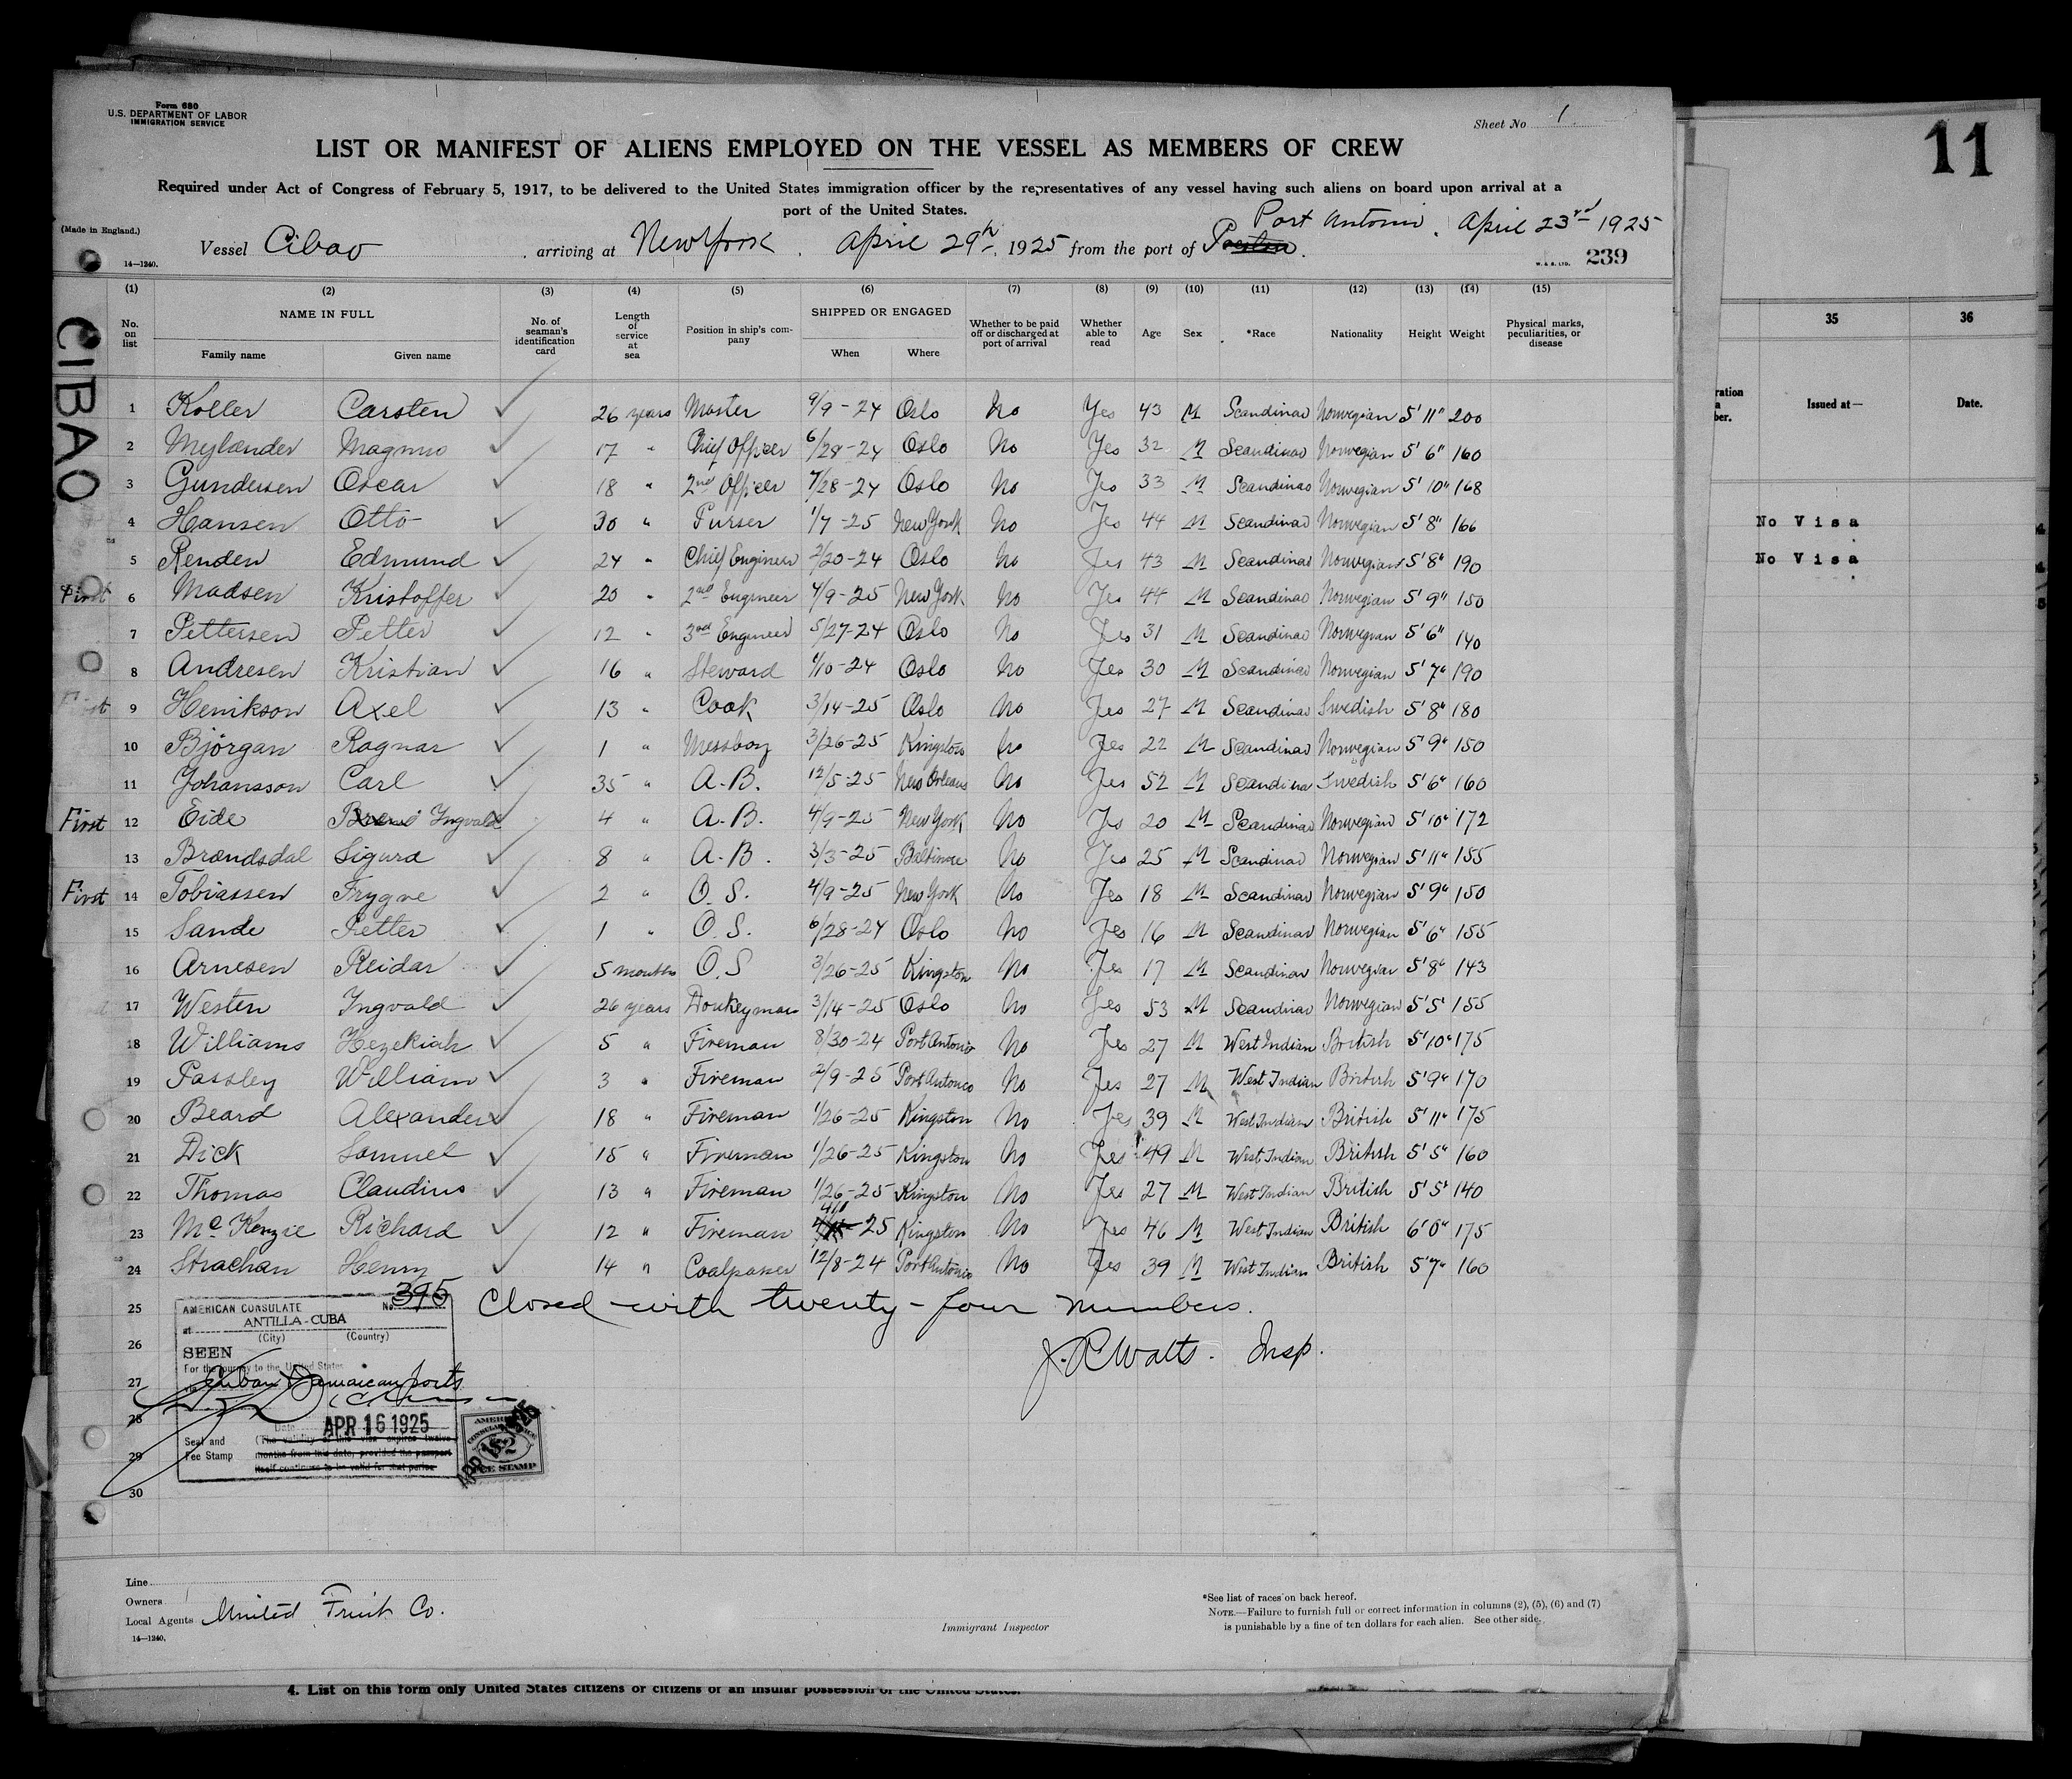 Form 680
U.S. DEPARTMENT OF LABOR
IMMIGRATION SERVICE
Sheet No 1
11
LIST OR MANIFEST OF ALIENS EMPLOYED ON THE VESSEL AS MEMBERS OF CREW
Required under Act of Congress of February 5, 1917, to be delivered to the United States immigration officer by the representatives of any vessel having such aliens on board upon arrival at a
port of the United States.
(Made in England.)
Port Antonio. April 23rd 1925
Vessel Cibao arriving at New York. April 29th, 1925 from the port of
14—1240. W. & S. LTD. 239
CIBAO
(1) (2) (3) (4) (5) (6) (7) (8) (9) (10) (11) (12) (13) (14) (15)
No. on list NAME IN FULL Family name Given name No. of seaman's identification card Length of service at sea Position in ship's company SHIPPED OR ENGAGED When Where Whether to be paid off or discharged at port of arrival Whether able to read Age Sex *Race Nationality Height Weight Physical marks, peculiarities, or disease
35 36
Issued at— Date.
1 Koller Carsten 26 years Master 9/9-24 Oslo No Yes 43 M Scandinav Norwegian 5' 11" 200
2 Mylander Magnus 17 " Chief Officer 6/28-24 Oslo No Yes 32 M Scandinav Norwegian 5' 6" 160
3 Gundersen Oscar 18 " 2nd Officer 7/28-24 Oslo No Yes 33 M Scandinav Norwegian 5' 10" 168
4 Hansen Otto 30 " Purser 1/7-25 New York No Yes 44 M Scandinav Norwegian 5' 8" 166
No Visa
5 Renden Edmund 24 " Chief Engineer 2/20-24 Oslo No Yes 43 M Scandinav Norwegian 5' 8" 190
No Visa
First 6 Madsen Kristoffer 20 " 2nd Engineer 4/9-25 New York No Yes 44 M Scandinav Norwegian 5' 9" 150
7 Pettersen Petter 12 " 3rd Engineer 5/27-24 Oslo No Yes 31 M Scandinav Norwegian 5' 6" 140
8 Andresen Kristian 16 " Steward 1/10-24 Oslo No Yes 30 M Scandinav Norwegian 5' 7" 190
First 9 Henikson Axel 13 " Cook 3/14-25 Oslo No Yes 27 M Scandinav Swedish 5' 8" 180
10 Bjørgan Ragnar 1 " Messboy 3/26-25 Kingston No Yes 22 M Scandinav Norwegian 5' 9" 150
11 Johansson Carl 35 " A.B. 12/5-25 New Orleans No Yes 52 M Scandinav Swedish 5' 6" 160
First 12 Eide Ingvald 4 " A.B. 4/9-25 New York No Yes 20 M Scandinav Norwegian 5' 10" 172
13 Brandsdal Sigurd 8 " A.B. 3/3-25 Baltimore No Yes 25 M Scandinav Norwegian 5' 11" 155
First 14 Tobiassen Trygve 2 " O.S. 4/9-25 New York No Yes 18 M Scandinav Norwegian 5' 9" 150
15 Sande Petter 1 " O.S. 6/28-24 Oslo No Yes 16 M Scandinav Norwegian 5' 6" 155
16 Arnesen Reidar 5 months O.S 3/26-25 Kingston No Yes 17 M Scandinav Norwegian 5' 8" 143
17 Westen Ingvald 26 years Donkeyman 3/14-25 Oslo No Yes 53 M Scandinav Norwegian 5' 5' 155
18 Williams Hezekiah 5 " Fireman 8/30-24 Port Antonio No Yes 27 M West Indian British 5' 10" 175
19 Passley William 3 " Fireman 2/9-25 Port Antonio No Yes 27 M West Indian British 5' 9" 170
20 Beard Alexander 18 " Fireman 1/26-25 Kingston No Yes 39 M West Indian British 5' 11" 175
21 Dick Samuel 15 " Fireman 1/26-25 Kingston No Yes 49 M West Indian British 5' 5" 160
22 Thomas Claudius 13 " Fireman 1/26-25 Kingston No Yes 27 M West Indian British 5' 5' 140
23 McKenzie Richard 12 " Fireman 25 Kingston No Yes 46 M West Indian British 6' 0" 175
24 Strachan Henry 14 " Coalpasser 12/8-24 Port Antonio No Yes 39 M West Indian British 5' 7" 160
25 Closed with twenty-four numbers.
26 J. R. Watts. Insp.
27
28
29
30
AMERICAN CONSULATE No. 395
at ANTILLA-CUBA
(City) (Country)
SEEN
For the journey to the United States
Cuban Jamaican ports
Date APR 16 1925
(The validity of this visa expires twelve
Seal and
Fee Stamp months from this date, provided the passport
itself continues to be valid for that period.
AMERICAN
CONSULAR SERVICE
$2
FEE STAMP
APR 16 1925
Line
Owners
Local Agents United Fruit Co.
14—1240.
Immigrant Inspector
*See list of races on back hereof.
NOTE.—Failure to furnish full or correct information in columns (2), (5), (6) and (7)
is punishable by a fine of ten dollars for each alien. See other side.
4. List on this form only United States citizens or citizens of an insular possession of the United States.